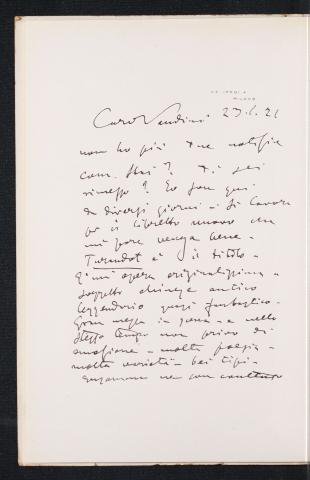 MILANO
23.6.21
Caro Vandini
non ho più tue notizie
Come stai? Ti sei
rimesso? Io son qui
da diversi giorni - si lavora
per il libretto nuovo che
mi pare venga bene -
Turandot è il titolo -
È un'opera originalissima -
soggetto chinese antico
leggendario quasi favolistico -
Gran messa in scena - e nello
stesso tempo non privo di
emozione - molta poesia -
molta varietà - bei tipi -
son contento